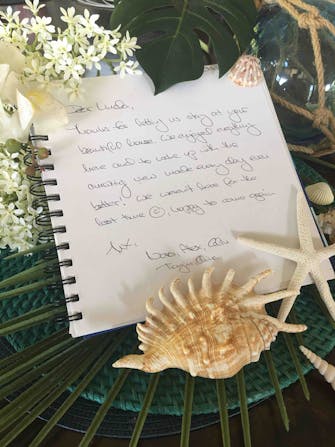 Dear
Thanks for letting us stay at your
beautiful house. We enjoyed everything
here and to wake up with this
amazing view made every day even
better! We weren't here for the
last time ☺, happy to come again
Alex,